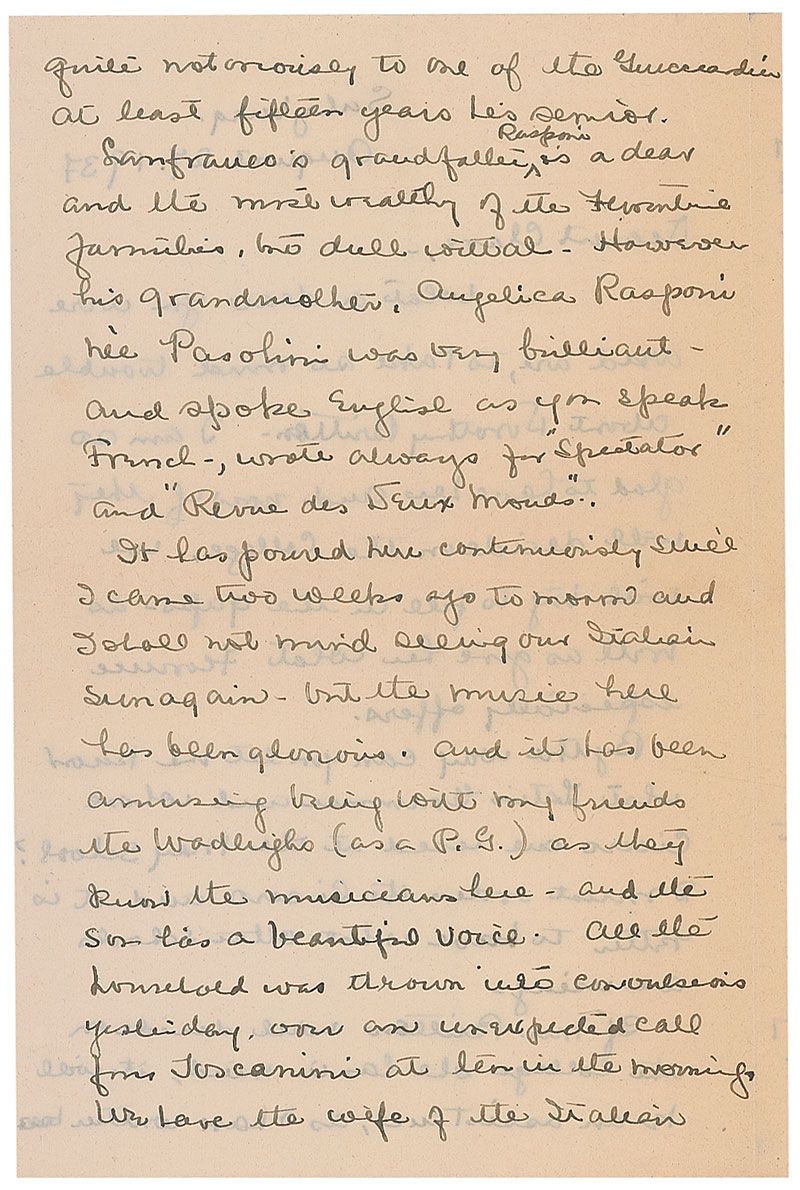 quite notoriously to one of the Guicciardini
at least fifteen years his senior.
Lanfranco's grandfather, Rasponi is a dear
and the most wealthy of the Florentine
families, but dull withal - However
his grandmother, Angelica Rasponi
née Pasolini was very brilliant -
and spoke English as you speak
French -, wrote always for "Spectator"
and "Revue des Deux Monds".
It has poured here continuously since
I came two weeks ago tomorrow and
I shall not mind seeing our Italian
sun again - but the music here
has been glorious. And it has been
amusing being with my friends
the Wadleighs (as a P.G.) as they
know the musicians here - and the
son has a beautiful voice. All the
household was thrown into convulsions
yesterday, over an unexpected call
from Toscanini at ten in the morning
We have the wife of the Italian